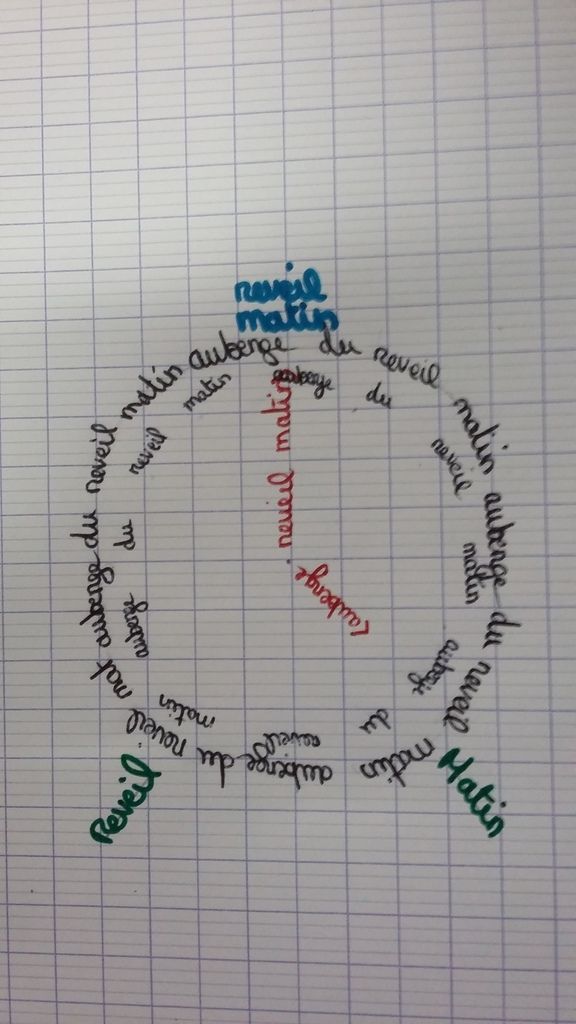 reveil
matin
auberge du reveil matin auberge du reveil matin auberge du reveil mat auberge du reveil matin
auberge du reveil matin auberge du reveil matin auberge du reveil matin
reveil matin
l'auberge
Reveil
Matin